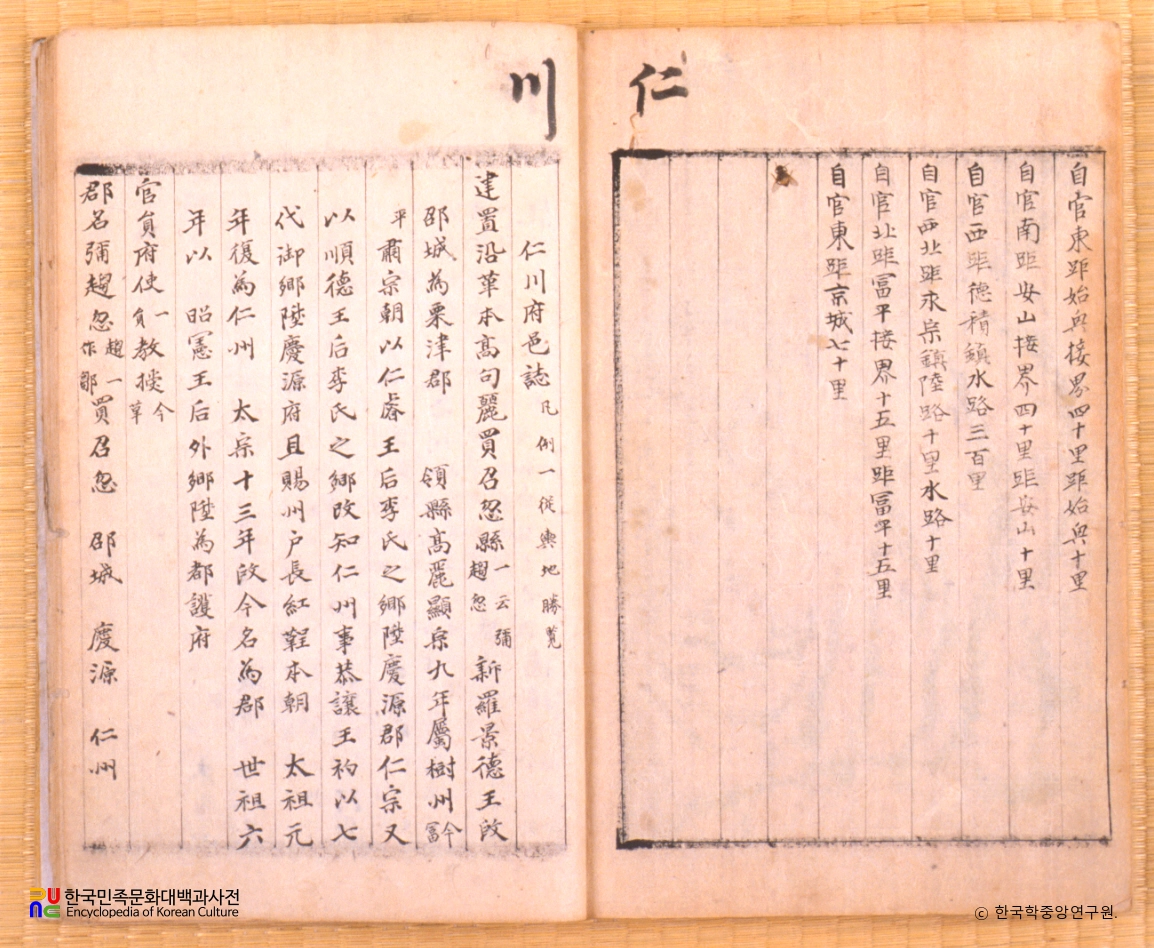 仁
自官東距始興接界四十里距始興十里
自官南距安山接界四十里距安山十里
自官西距德積鎭水路三百里
自官西北距永宗鎭陸路十里水路十里
自官北距富平接界十五里距富平十五里
自官東距京城七十里
川
仁川府邑誌 凡例一從輿地勝覧
建置沿革本高句麗買召忽縣一云彌趨忽新羅景德王改
邵城為栗津郡 領縣高麗顯宗九年屬樹州今富
平肅宗朝以仁睿王后李氏之鄉陞慶源郡仁宗又
以順德王后李氏之鄉改知仁州事恭讓王初以七
代御鄉陞慶源府且賜州戶長紅鞓本朝 太祖元
年復為仁州 太宗十三年改今名為郡 世祖六
年以 昭憲王后外鄉陞為都護府
官員府使一負教授今革
郡名彌趨忽趨一作鄒買召忽 邵城 慶源 仁州
한국민족문화대백과사전
Encyclopedia of Korean Culture
ⓒ 한국학중앙연구원.